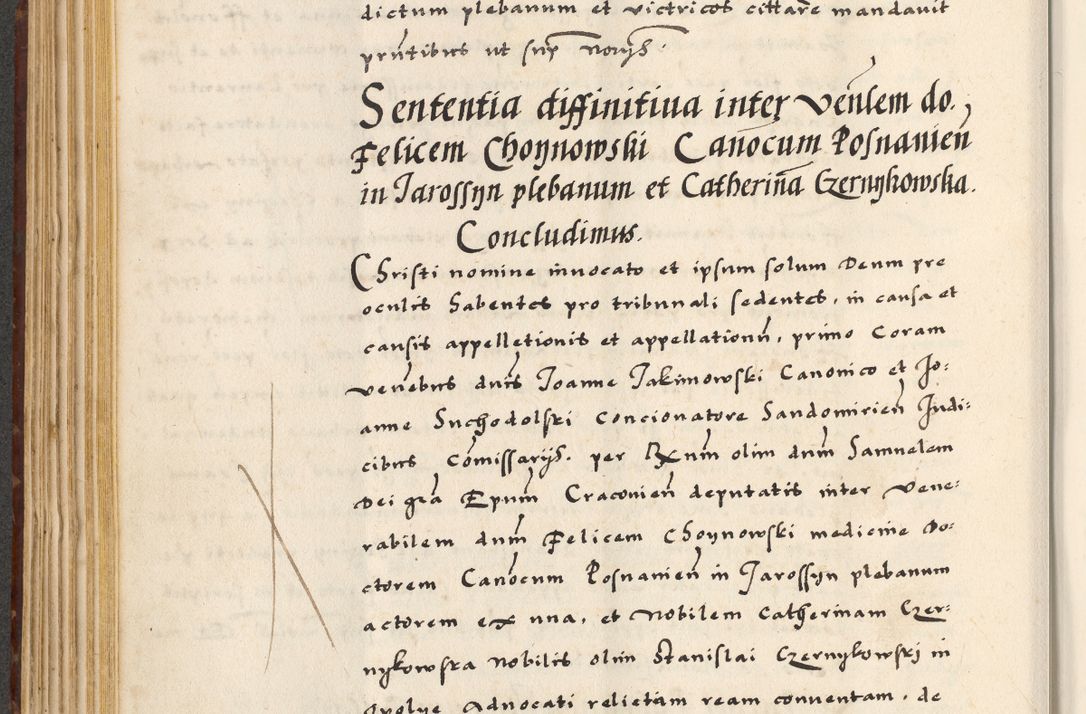 dictum plebanum et victricos cittare mandavit
pñtibus ut sup̃ nonis.
Sententia diffinitiua inter Veñlem do.
Felicem Choynowski Canõcum Posnanieñ
in Jarossyn plebanum et Catheriñã Czernykowska.
Concludimus.
Christi nomine invocato et ipsum solum Deum pre
oculis habentes pro tribunali sedentes, in causa et
causis appelletionis et appellationũ, primo Coram
venẽbus dnĩs Joanne Jakimowski Canonico et Jo-
anne Suchodolski concionatore Sandomirieñ Judi-
cibus Com̃issarijs. per Rx̃num olim dnm̃ Samuelem
Dei grã Ep̃um Cracovieñ deputatis inter vene-
rabilem dnm̃ Felicem Choynowski medicine Do-
ctorem Canõcum Posnanieñ in Jarossyn plebanum
actorem ex una, et Nobilem Catherinam Czer-
nykowska nobilis olim Stanislai Czernykowskj in
Advocati relictam ream conventam, de